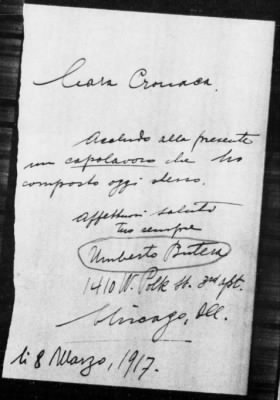 Cara Cronaca,
Accludo alla presente
un capolavoro che ho
composto oggi stesso.
Affettuosi saluti
tuo sempre
Umberto Butera
1410 W. Polk St. 3rd apt.
Chicago, Ill.
li 8 Marzo, 1917.